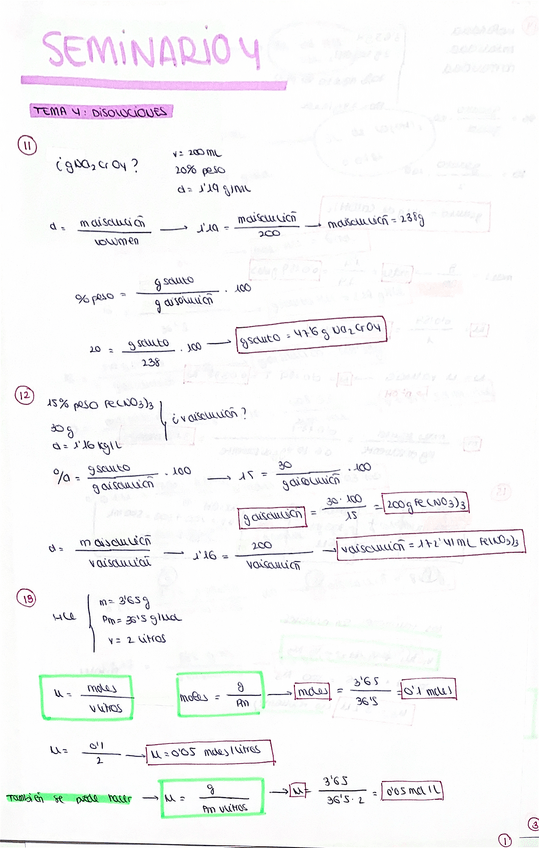 SEMINARIO 4
TEMA 4: DISOLUCIONES
11
¿gNa2CrO4?
v = 200 mL
20% peso
d = 1'19 g/mL
d = mdisolución / volumen → 1'19 = mdisolución / 200 → mdisolución = 238g
% peso = g soluto / g disolución · 100
20 = g soluto / 238 · 100 → g soluto = 47'6 g Na2CrO4
12
15% peso Fe(NO3)3
30 g
d = 1'16 kg/L
¿vdisolución?
%d = g soluto / g disolución · 100 → 15 = 30 / g disolución · 100
g disolución = 30 · 100 / 15 = 200g Fe(NO3)3
d = m disolución / v disolución → 1'16 = 200 / v disolución → v disolución = 172'41 mL Fe(NO3)3
13
HCl
m = 3'65 g
Pm = 36'5 g/mol
v = 2 litros
M = moles / v litros
moles = g / Pm → moles = 3'65 / 36'5 = 0'1 moles
M = 0'1 / 2 → M = 0'05 moles/litros
también se puede hacer → M = g / Pm · v litros → M = 3'65 / 36'5 · 2 = 0'05 mol/L
1
3